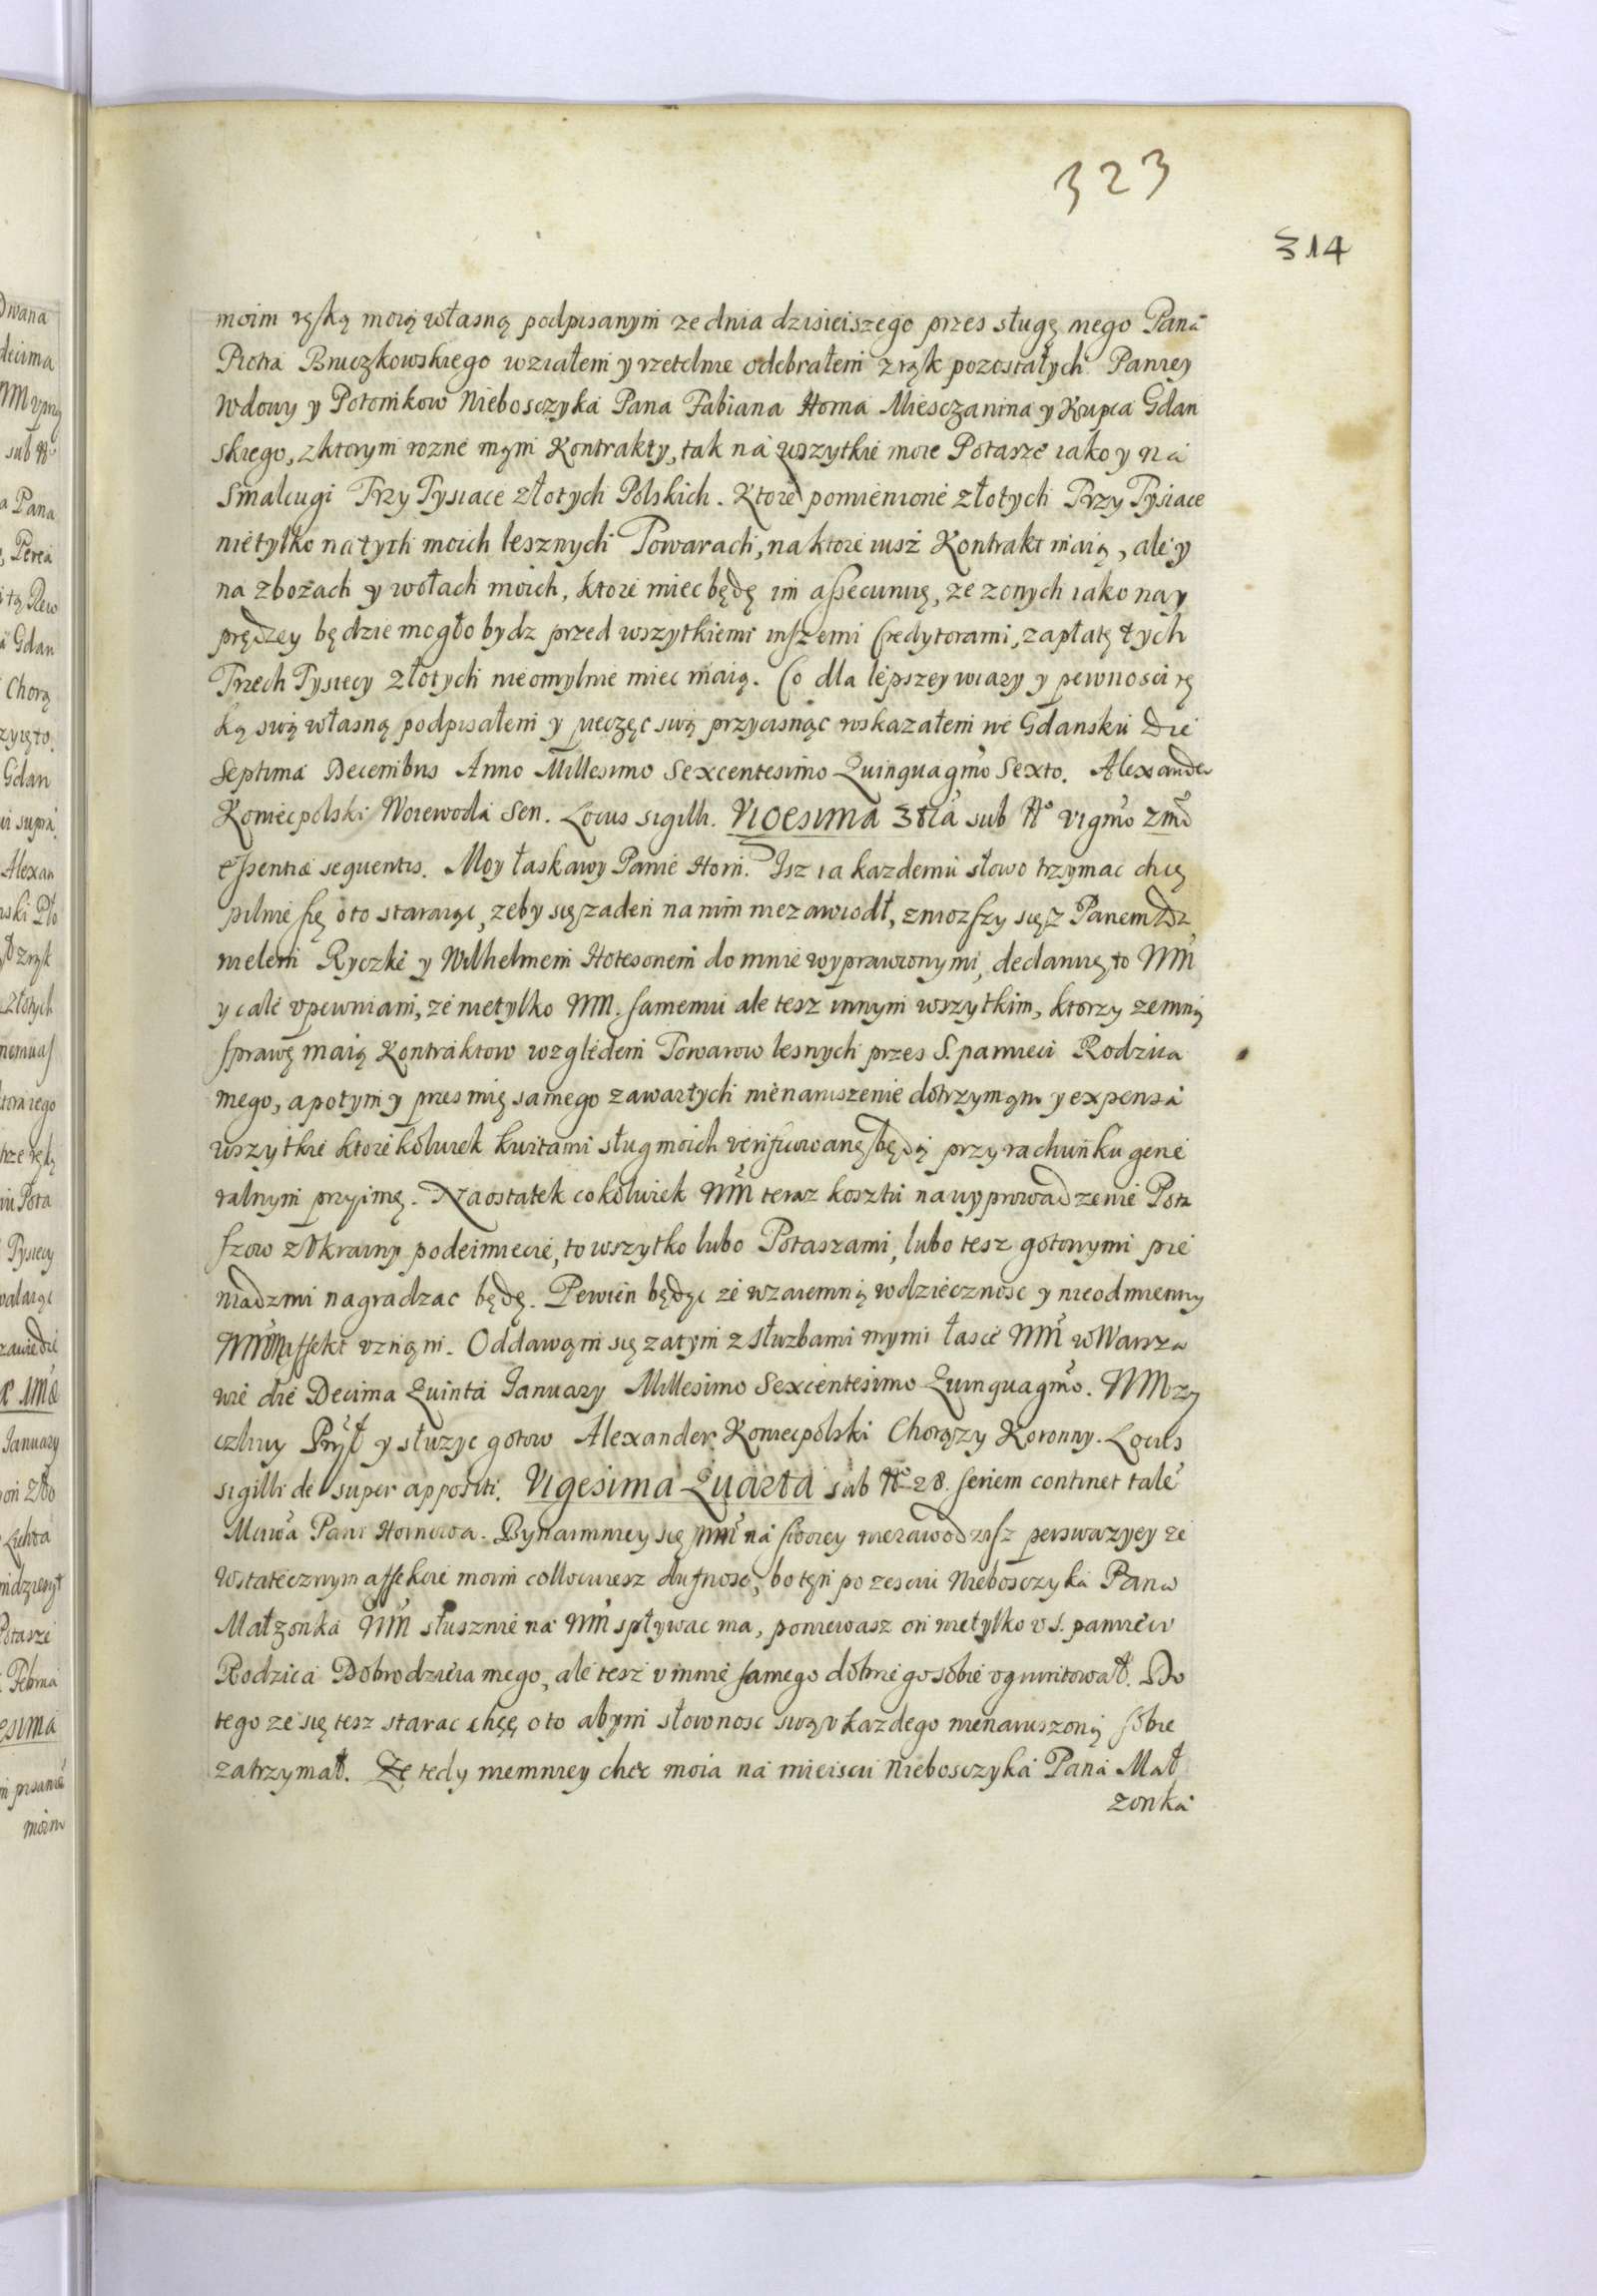 323
314
Dwana
decima
sub No
a Pana
, Petea
i tą Rew
a Gdan
Chorą
zyięto.
Gdan
ui supra
Alexan
ski Pło
zrąk
złotych
nemuas
toraiego
in Pota
Tysięcy
zawiedzie
January
Potasze
Februa
esima
m pisanie
moim
moim ręką moią własną podpisanym ze dnia dzisieiszego przes sługę mego Pana
Piotra Bruczkowskiego wziałem y rzetelnie odebrałem z rąk pozostałych Paniey
Wdowy y Potomkow Nieboszczyka Pana Fabiana Horna Miesczanina y Kupca Gdan
skiego, z ktorym rozne mąm Kontrakty, tak na wszytkie moie Potasze iako y na
Smalcugi Trzy Tysiace złotych Polskich. Ktore pomienione złotych Trzy Tysiace
nietylko na tych moich lesznych Towarach, na ktore iusz Kontrakt maią, ale y
na zbożach y wołach moich, ktore miec będę im assecuruię, ze z onych iako nay
prędzey będzie mogło bydz przed wszytkiemi inszemi Credytorami, zapłatę tych
Trzech Tysięcy złotych nieomylnie miec maią. Co dla lepszey wiary y pewnosci rę
ką swą własną podpisałem y pieczęc swą przycisnąc roskazałem we Gdansku Die
Septima Decembris Anno Millesimo Sexcentesimo Quinquagmo Sexto. Alexander
Koniecpolski Woiewoda Sen. Locus sigilli. Vigesima 3tia sub No vigmo 2mo
essentiæ sequentis. Moy łaskawy Panie Horn. Isz ia kazdemu słowo trzymac chcę
pilnie się o to staraiąc, zeby się zaden na nim nie zawiodł, zniozszy się z Panem Da
nielem Ryczke y Wilhelmem Hotesonem do mnie wyprawionymi, declaruię to WM
y cale upewniam, ze nietylko WM. samemu ale tesz innym wszytkim, ktorzy zemną
sprawę maią Kontraktow względem Towarow lesnych przes S. pamieci Rodzica
mego, a potym y przes mię samego zawartych nienaruszenie dotrzymąm y expensa
wszytkie ktorekolwiek kwitami sług moich verificowane będą przy rachunku gene
ralnym przyimę. Na ostatek cokolwiek WM teraz kosztu na wyprowadzenie Pota
szow z Ukrainy podeimiecie, to wszytko lubo Potaszami, lubo tesz gotowymi pie
niadzmi nagradzac będę. Pewien będąc ze wzaiemną wdziecznosc y nieodmienny
WMM affekt uznąm. Oddawąm się zatym z słuzbami mymi łasce WM w Warsza
wie die Decima Quinta January Millesimo Sexcentesimo Quinquagmo. WM zy
czliwy Prył y słuzyc gotow Alexander Koniecpolski Chorązy Koronny. Locus
sigilli de super appositi. Vigesima Quarta sub No 28. seriem continet tale
Mciwa Pani Hornowa. Bynaimniey się WM na swoiey niezawodzisz perswazyey ze
w statecznym affekcie moim collocuiesz dufnosc, bo tęn po zesciu Nieboszczyka Pana
Małzonka WM słusznie na WM spływac ma, poniewasz on nietylko u S. pamieci
Rodzica Dobrodzieia mego, ale tesz u mnie samego dobrze go sobie ugruntował. Do
tego ze się tesz starac chcę o to abym słownosc swą u kazdego nienaruszoną sobie
zatrzymał. Ze tedy niemniey chęc moia na mieiscu Nieboszczyka Pana Mał
zonka